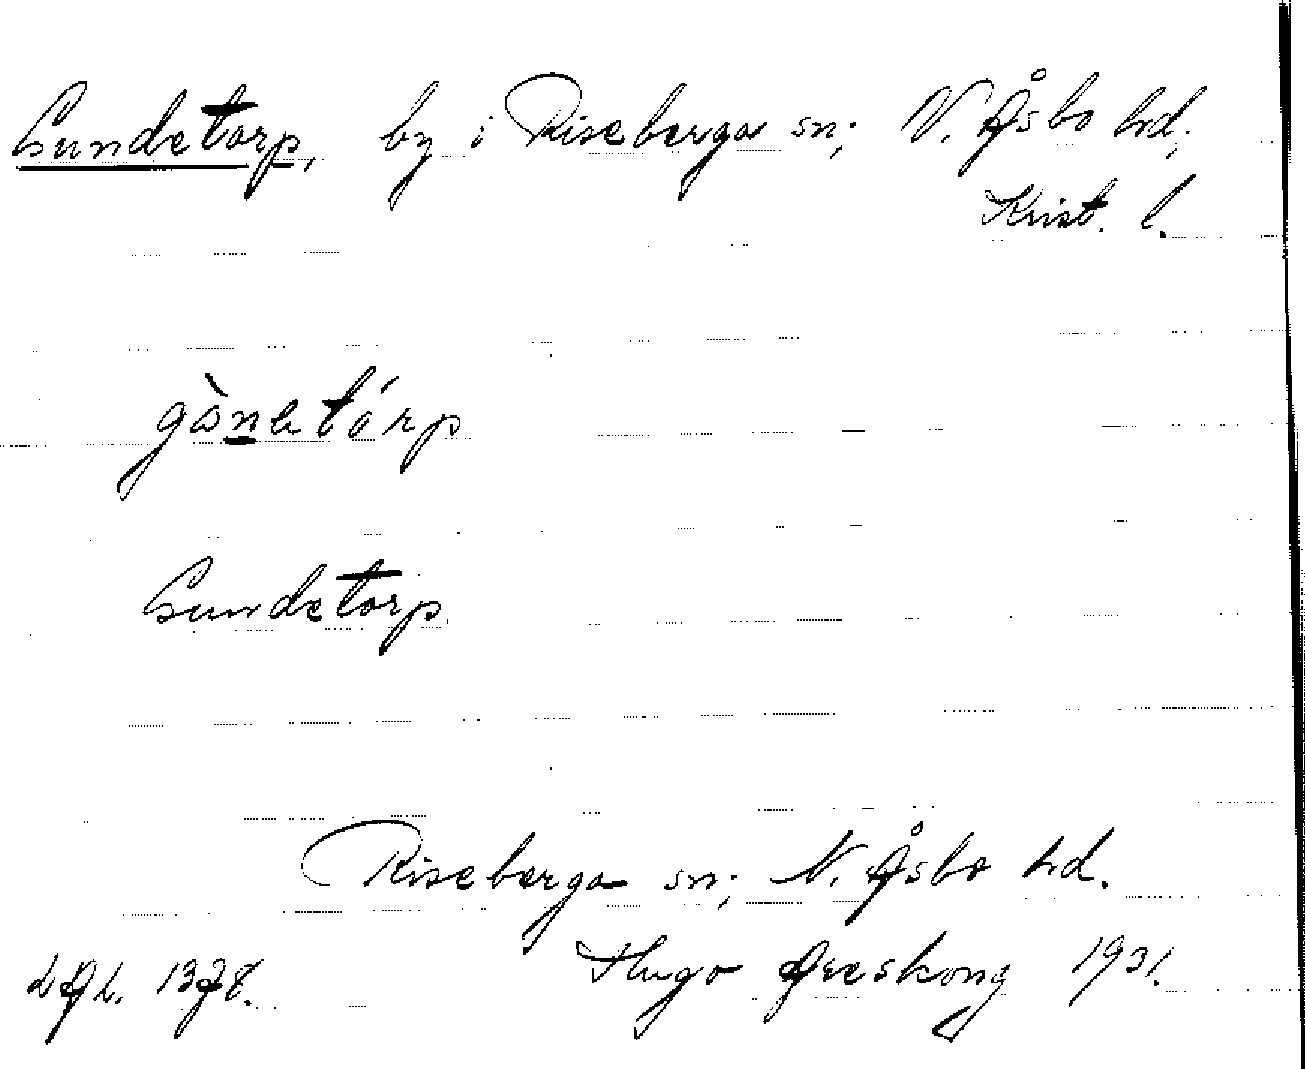 Gundetorp, by i Riseberga sn; N. Åsbo hd.
Krist. l.
gònetórp
Gundetorp
Riseberga sn; N. Åsbo hd.
Hugo Areskoug 1931.